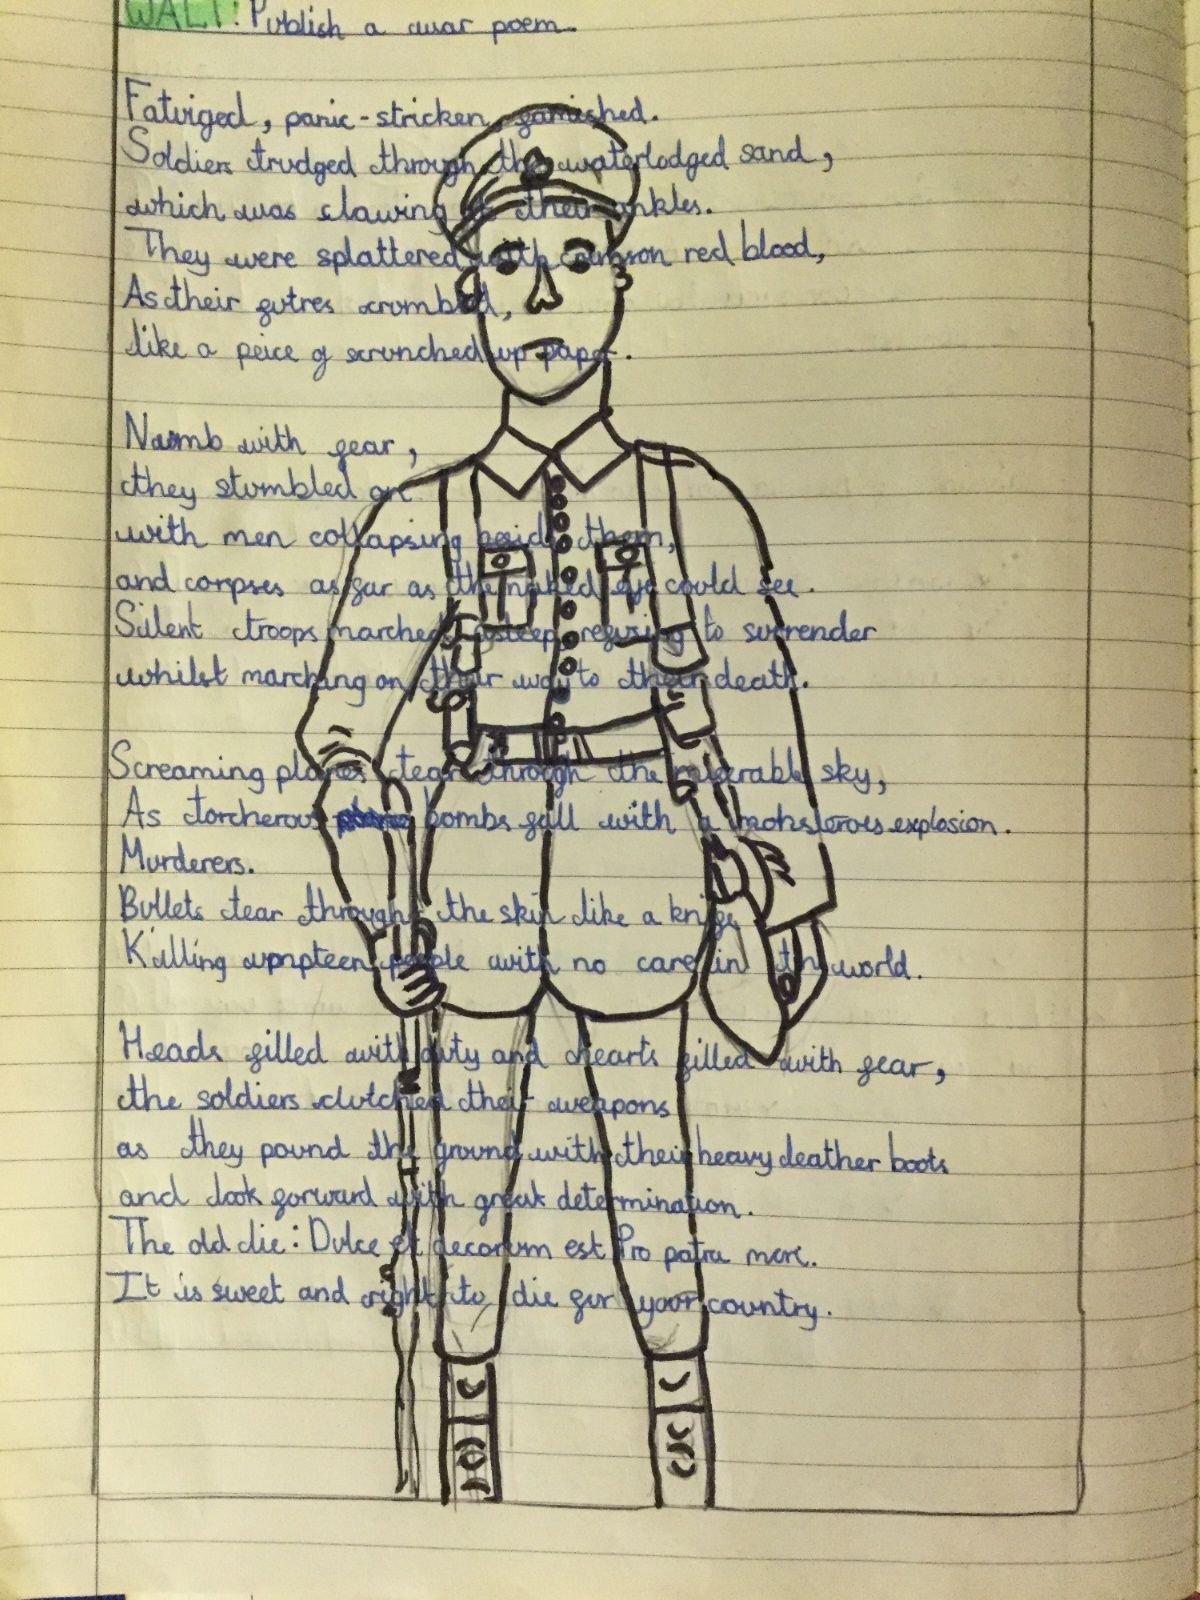 WALT: Publish a war poem.
Fatuiged, panic-stricken, famished.
Soldiers trudged through the waterlodged sand,
which was clawing at their ankles.
They were splattered with crimson red blood,
As their futres crumbled,
like a peice of scrunched up paper.
Numb with fear,
they stumbled on
with men collapsing beside them,
and corpses as far as the naked eye could see.
Silent troops marched asleep, refusing to surrender
whilst marching on their way to their death.
Screaming planes tear through the miserable sky,
As torcherous bombs fall with a monsterous explosion.
Murderers.
Bullets tear through the skin like a knife
Killing people with no care in the world.
Heads filled with duty and hearts filled with fear,
the soldiers clutched their weapons
as they pound the ground with their heavy leather boots
and look forward with great determination.
The old lie: Dulce et decorum est Pro patra more.
It is sweet and right to die for your country.